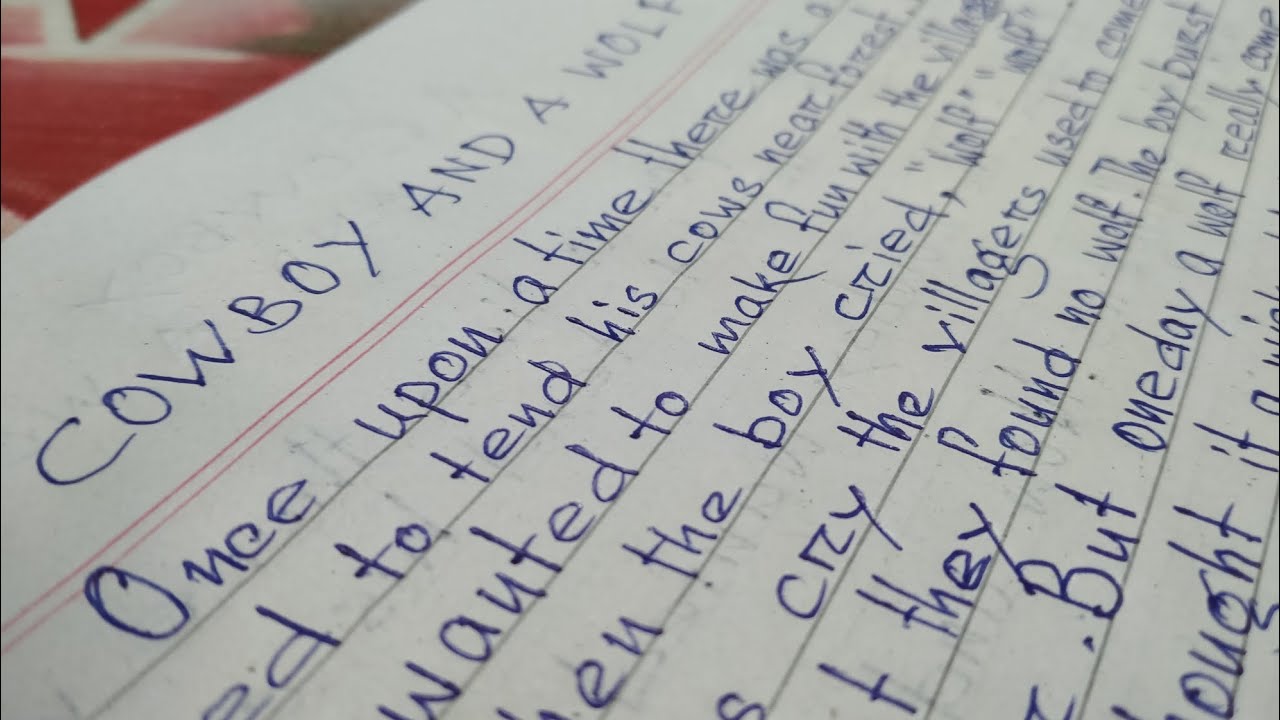 COWBOY AND A WOLF
Once upon a time there was a
ed to tend his cows near forest
wanted to make fun with the village
hen the boy cried, "wolf" "wolf"
s cry the villagers used to come
t they found no wolf. The boy burst
r. But oneday a wolf really come
ought it a